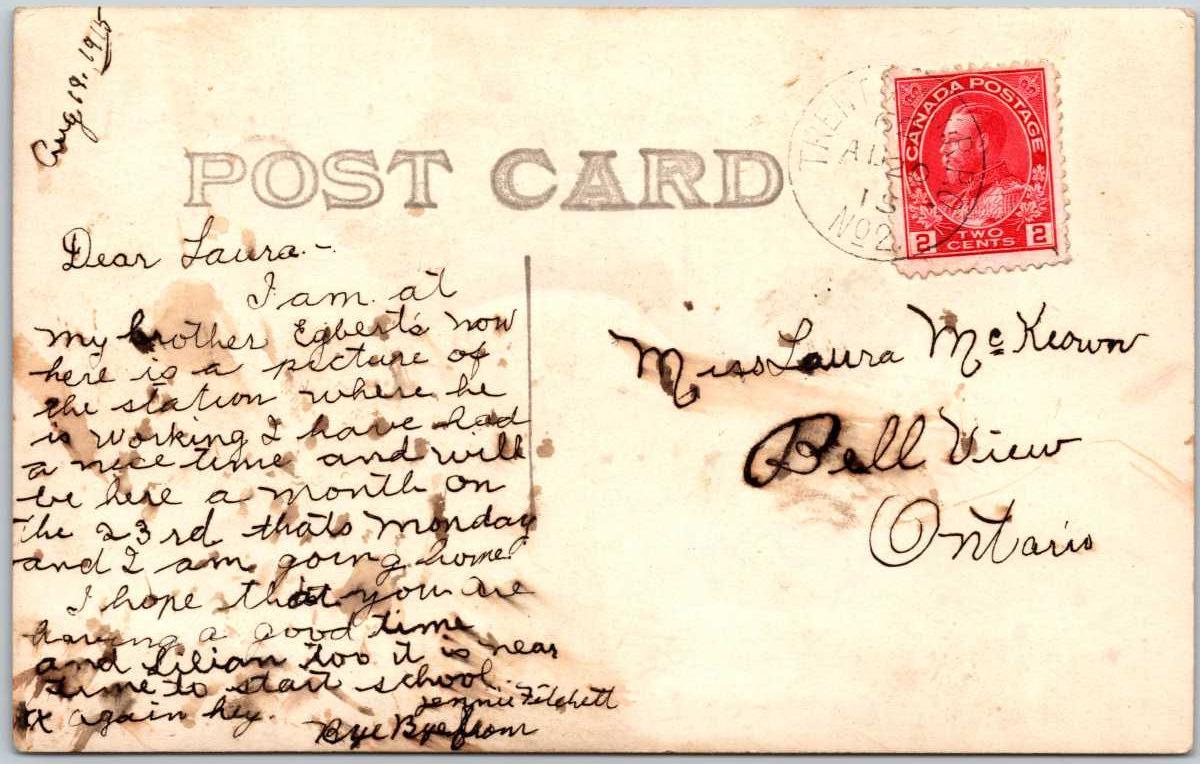 Aug 19, 1915
POST CARD
CANADA POSTAGE
2 TWO CENTS 2
No 2
Dear Laura.-
I am at
my brother Egberts now
here is a picture of
the station where he
is working I have had
a nice time and will
be here a month on
the 23rd thats Monday
and I am going home
I hope that you are
having a good time
and Lilian too it is near
time to start school
again hey.
Bye Bye from
Jennie Fitchett
Miss Laura McKeown
Bell View
Ontario